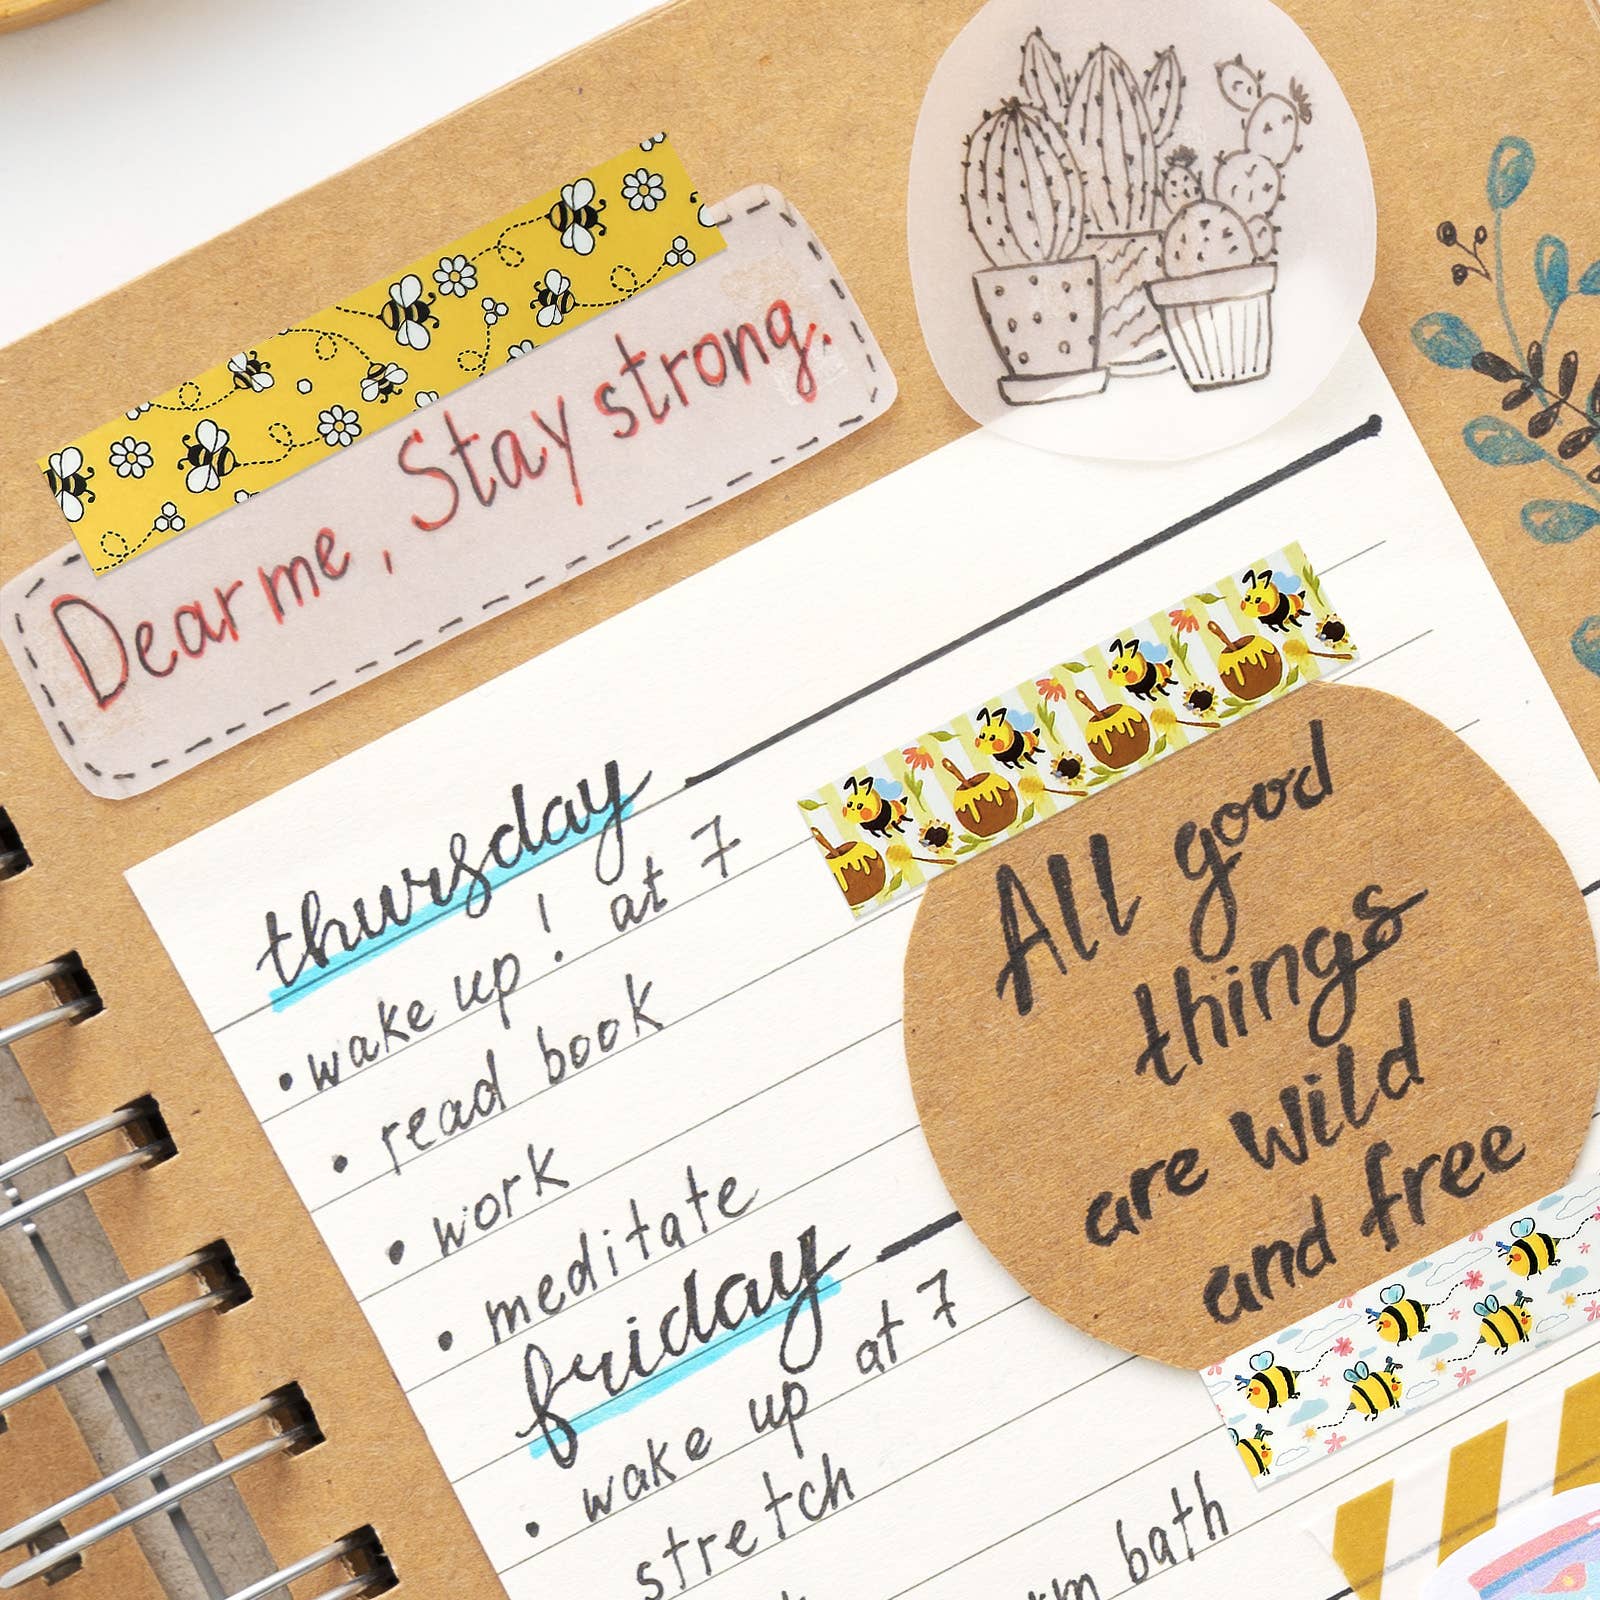 Dear me, Stay strong.
thursday
• wake up! at 7
• read book
• work
• meditate
friday
• wake up at 7
stretch
bath
All good
things
are wild
and free